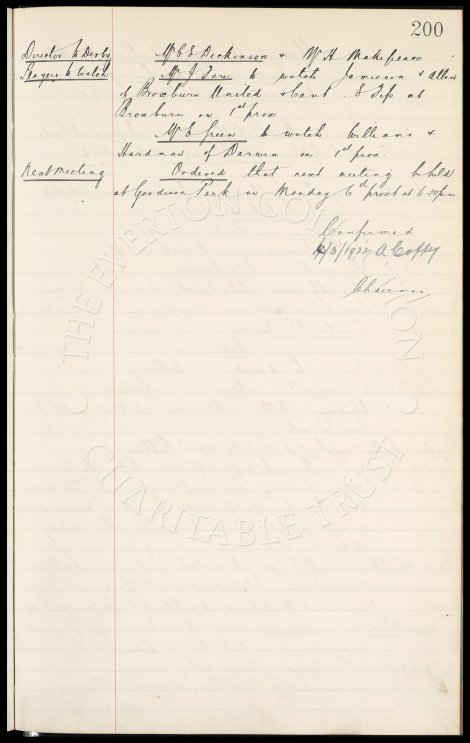 200
Director to Derby Mr C E Dickinson & Mr H Makepeace
Players to Watch Mr J Fare to watch Jamieson & Allan
of Broxburn United & Cant E Fife at
Broxburn on 1st prox
Mr E Green to watch Williams &
Hardman of Darwen on 1st prox.
Next Meeting Ordered that next meeting be held
at Goodison Park on Monday 6th prox at 6.30pm
Confirmed
/3/1922 A Coffey
Chairman
THE EVERTON COLLECTION
CHARITABLE TRUST